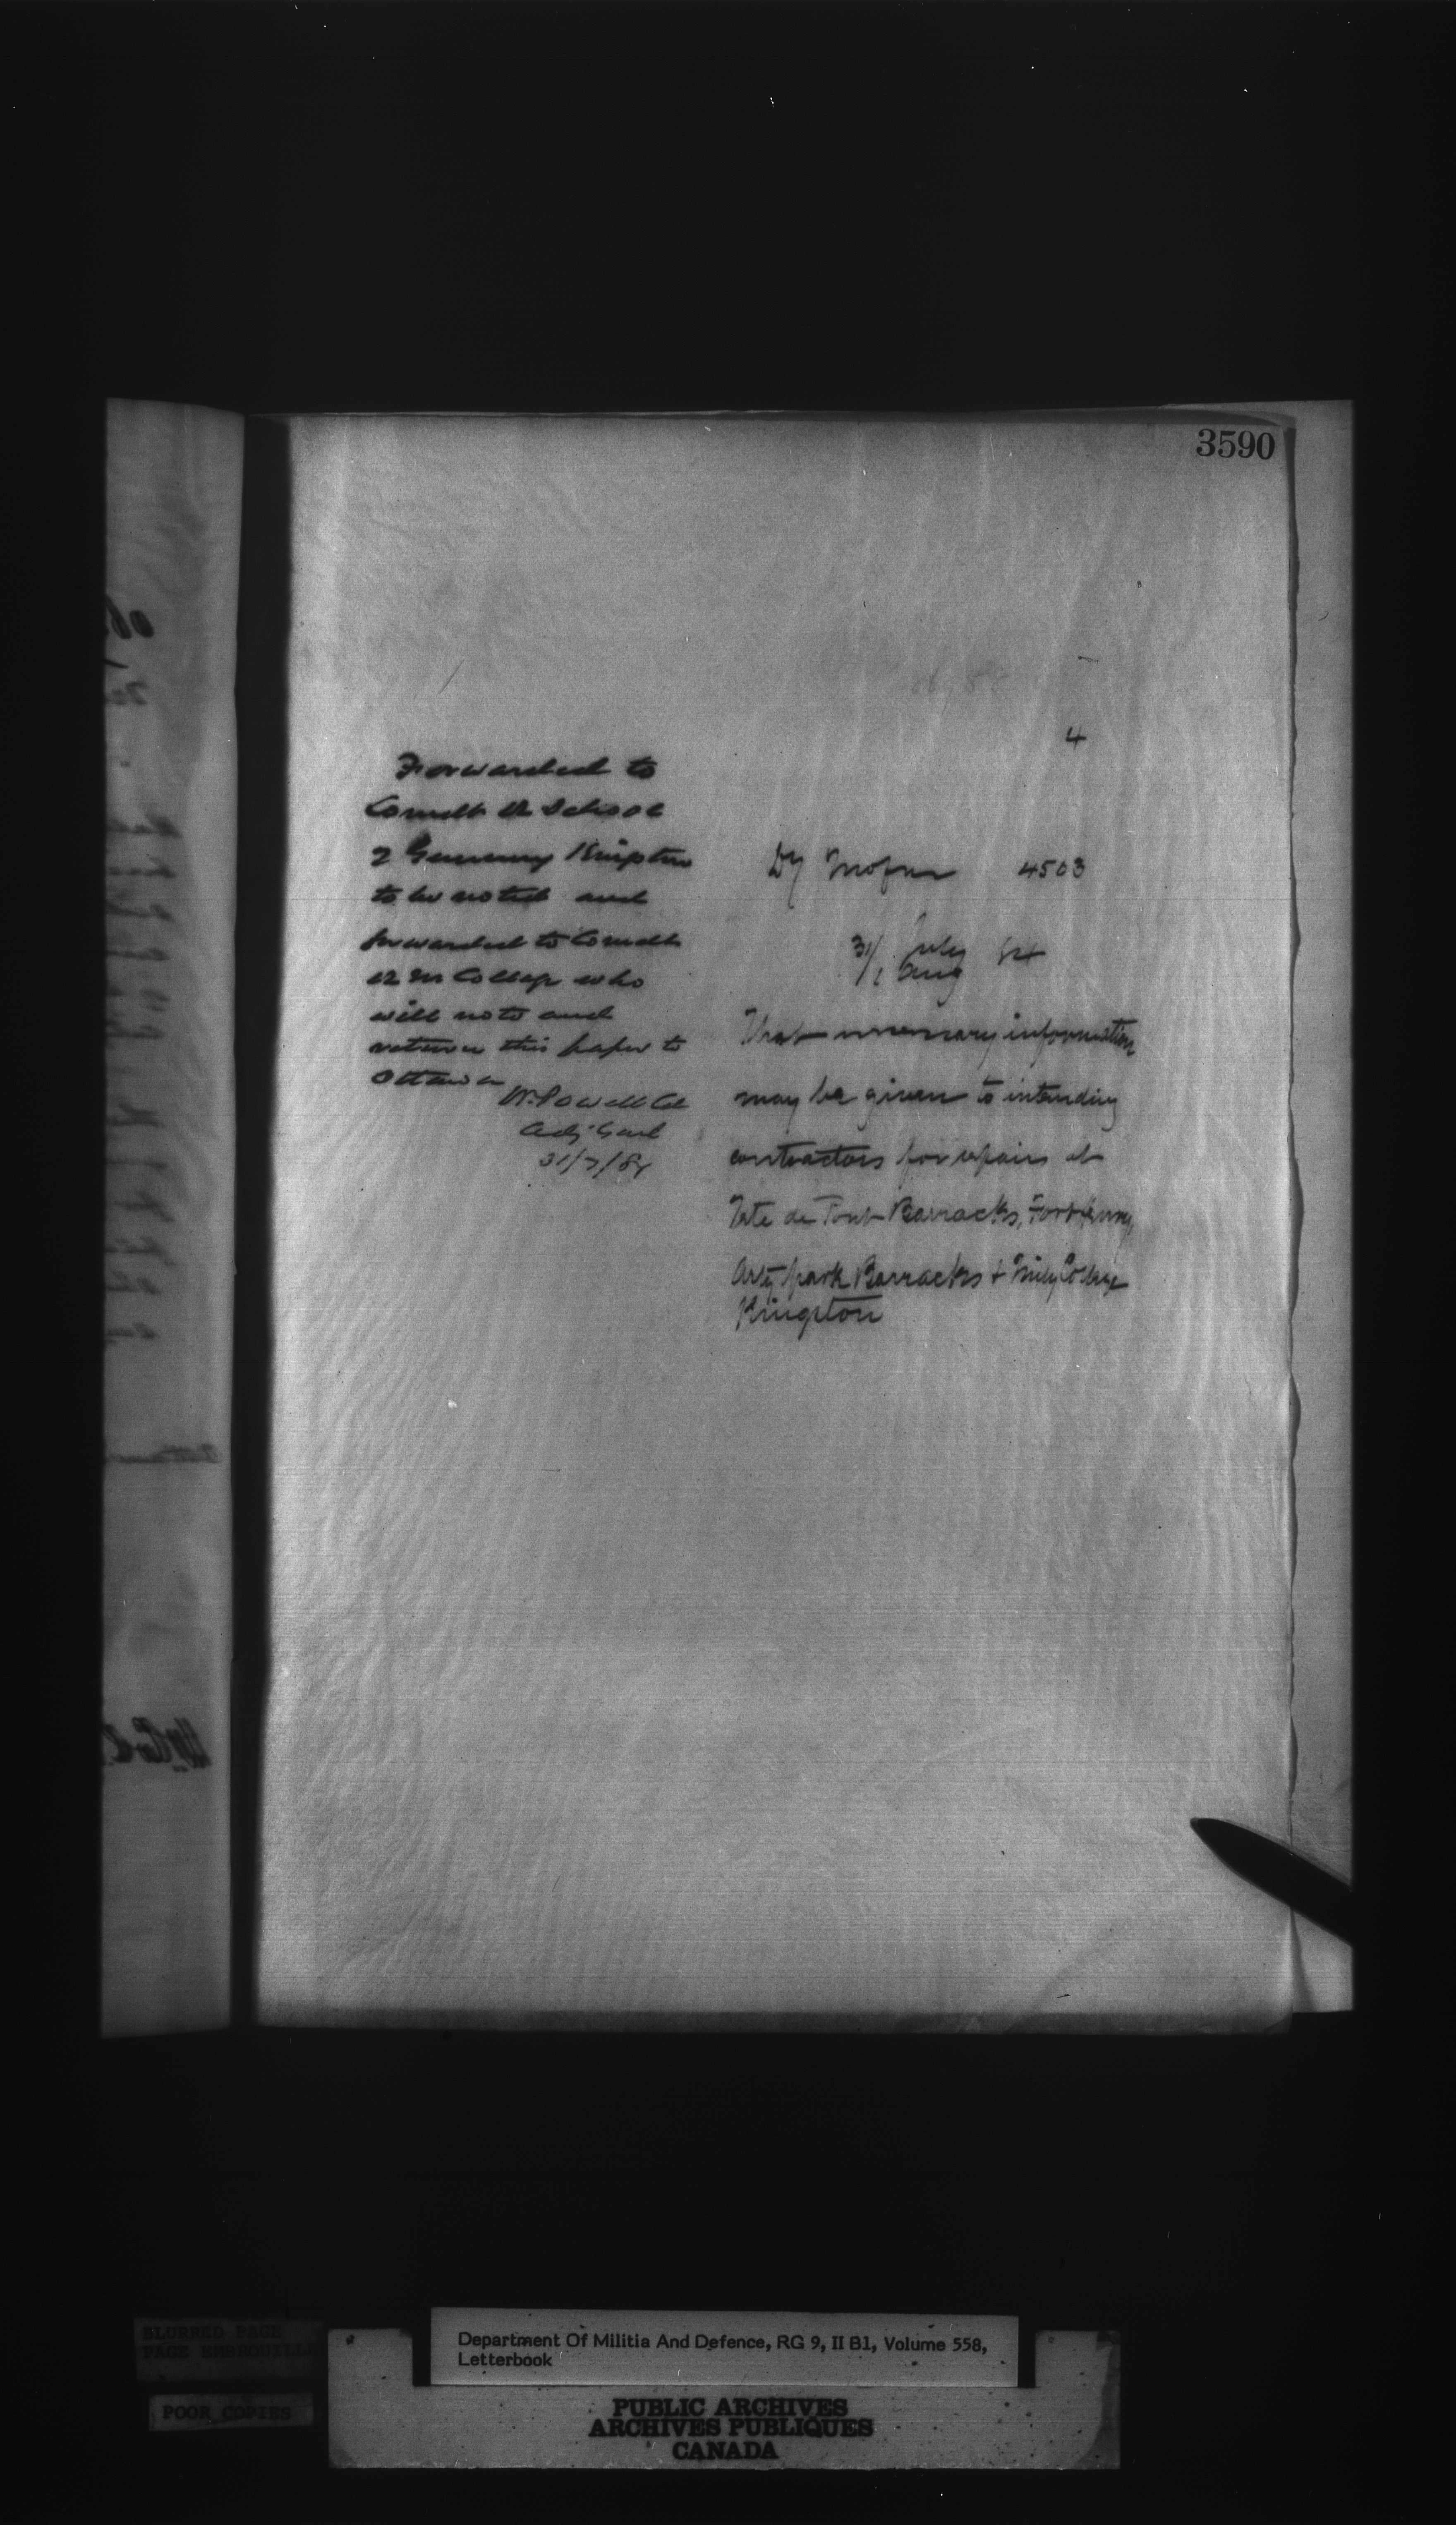 3590
4
Forwarded to
Comdt R School
of Gunnery Kingston
to be noted and
forwarded to Comdt
R M College who
will note and
return this paper to
Ottawa
W. Powell Col
Adj Genl
31/7/84
Dy 4503
31/1 July Aug 84
That necessary information
may be given to intending
contractors for repairs at
Tete de Pont Barracks, Fort Henry,
Arty park Barracks + Mily College
Kingston
BLURRED PAGE
PAGE EMBROUILLE
POOR COPIES
Department Of Militia And Defence, RG 9, II B1, Volume 558,
Letterbook
PUBLIC ARCHIVES
ARCHIVES PUBLIQUES
CANADA